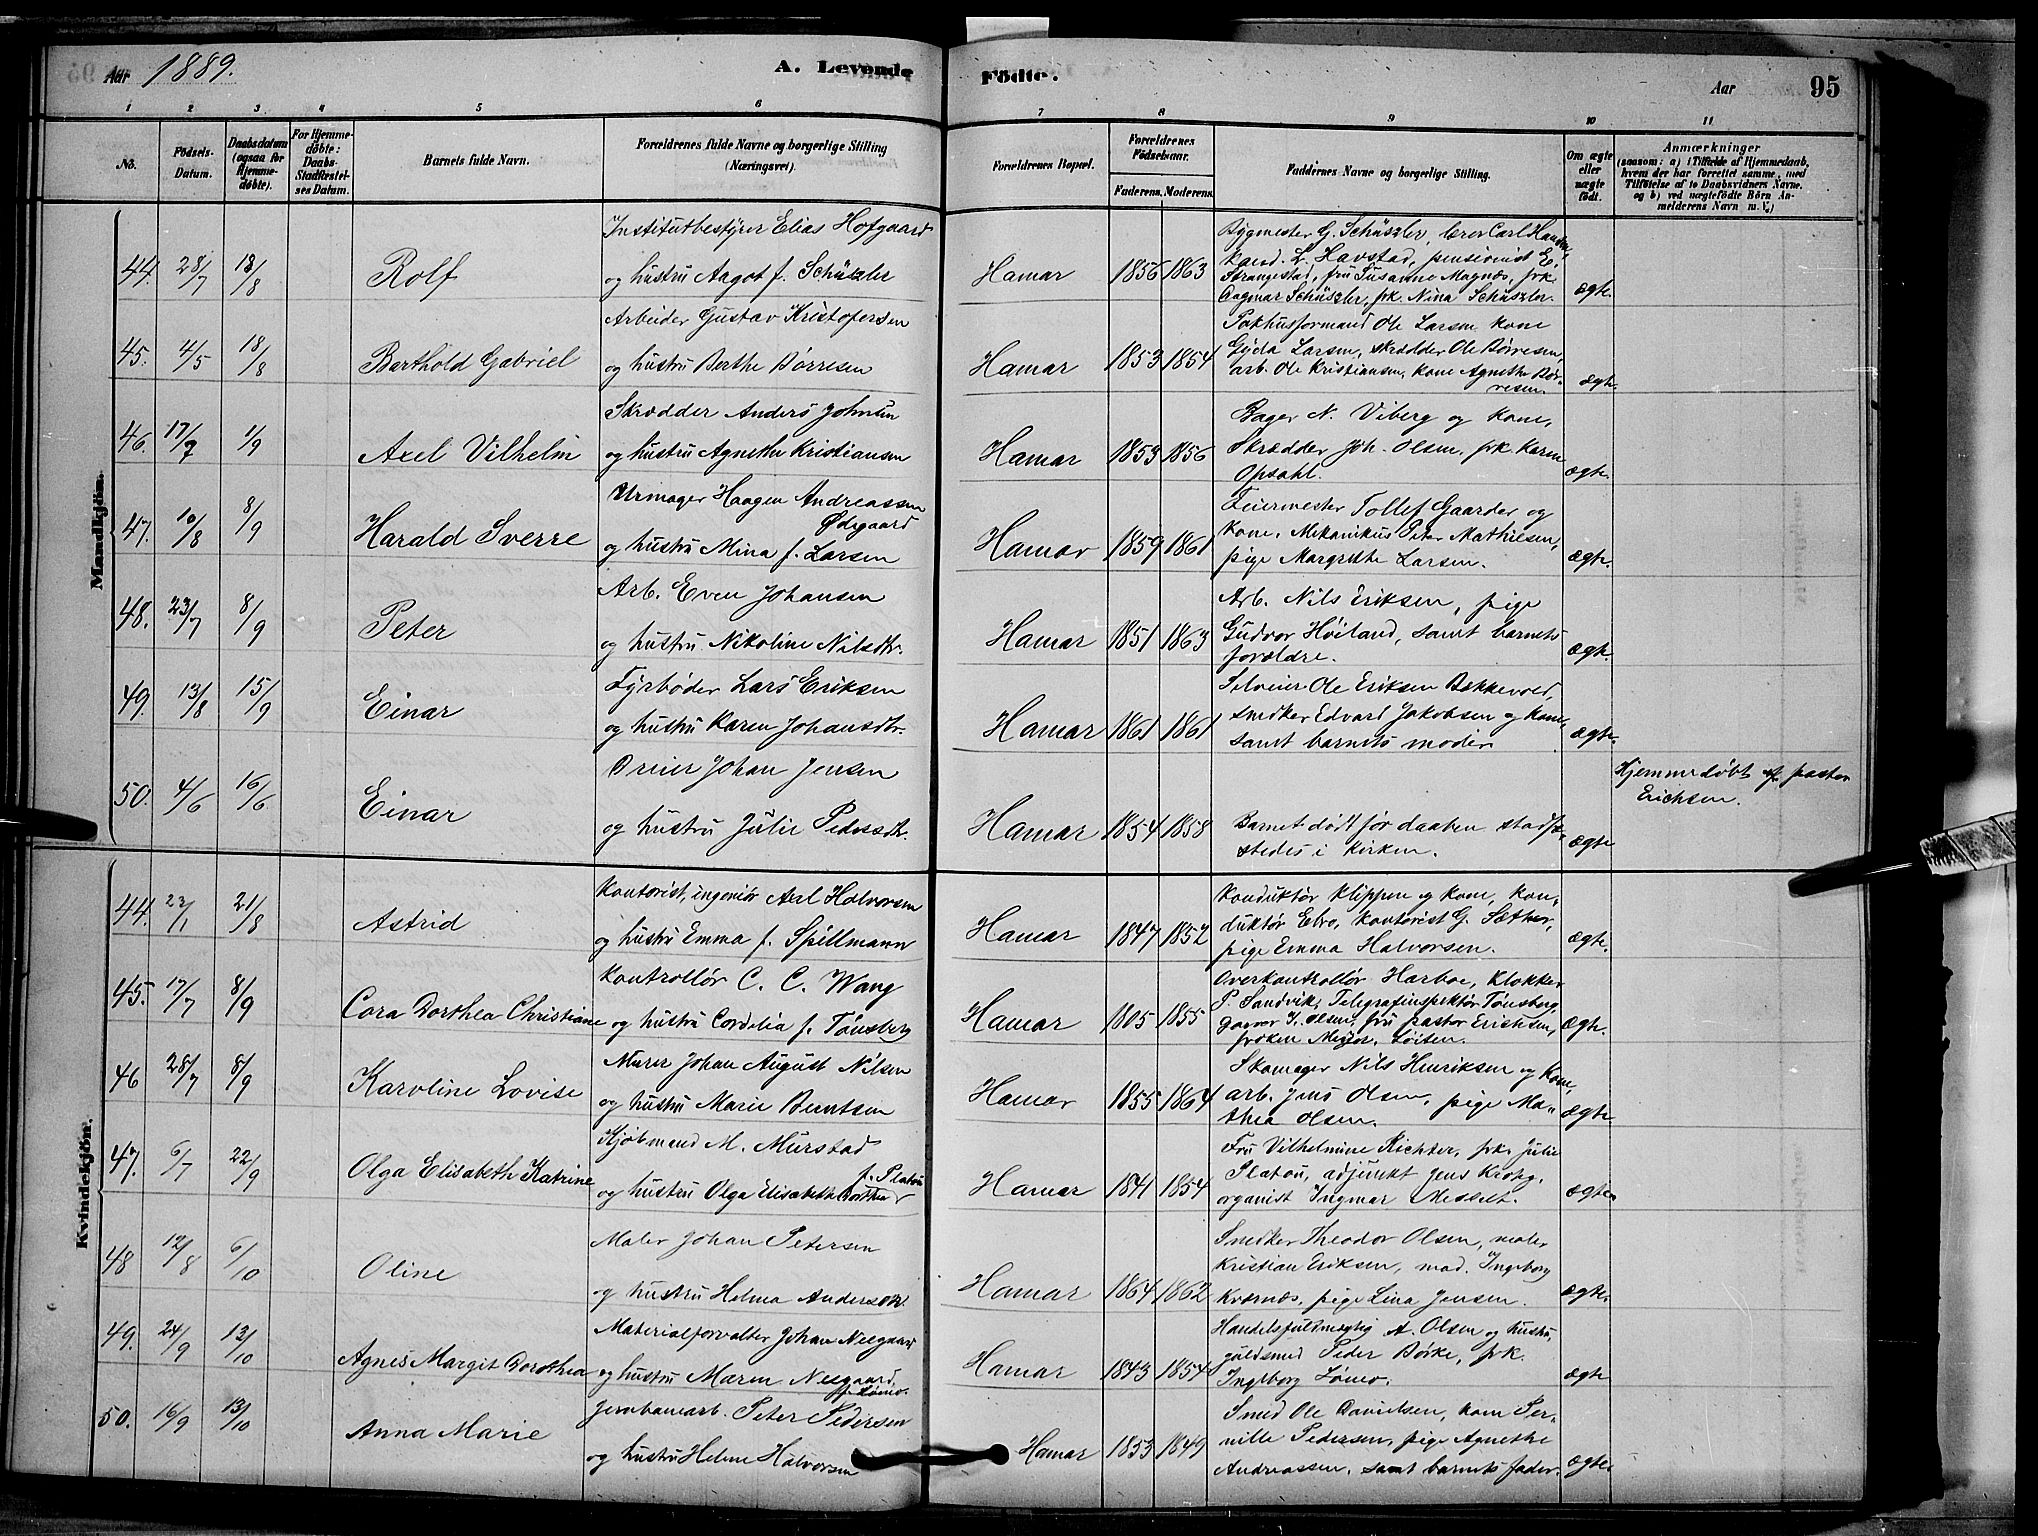 Aar 1889.
A. Levende Födte.
Aar
95
1 2 3 4 5 6 7 8 9 10 11
No.
Födsels-Datum.
Daabsdatum (ogsaa for Hjemmedöbte).
For Hjemmedöbte: Daabs-Stadfæstelses Datum.
Barnets fulde Navn.
Forældrenes fulde Navne og borgerlige Stilling (Næringsvei).
Forældrenes Bopæl.
Forældrenes Födselsaar.
Faderens. Moderens.
Faddernes Navne og borgerlige Stilling.
Om ægte eller uægte födt.
Anmærkninger
(saasom: a) i Tilfælde af Hjemmedaab, hvem der har forrettet samme, med Tilföielse af to Daabsvidners Navne, og b) ved uægtefödte Börn Anmelderens Navn m. V.)
Mandkjön.
44. 28/7 18/8 Rolf
Institutbestyrer Elias Hofgaard
og hustru Aagot f. Schüszler
Hamar 1856 1863
Bygmester G. Schüszler, lærer Carl Hansen,
kand. L. Havstad, pensionist E.
Strangestad, fru Susanne Magnæs, frk.
Dagmar Schüszler, frk. Nina Schüszler.
ægte.
45. 4/5 18/8 Barthold Gabriel
Arbeider Gustav Kristofersen
og hustru Berthe Börresen
Hamar 1853 1854
Pakhusformand Ole Larsen kone
Gyda Larsen, skrædder Ole Börresen,
arb. Ole Kristiansen, kone Agnethe Bör-
resen.
ægte.
46. 17/7 1/9 Axel Vilhelm
Skrædder Anders Johnsen
og hustru Agnethe Kristiansen
Hamar 1853 1856
Bager N. Viberg og kone,
Skrædder Joh. Olsen, frk. Karen
Opsahl.
ægte.
47. 10/8 8/9 Harald Sverre
Urmager Haagen Andreassen
Ødegaard
og hustru Mina f. Larsen
Hamar 1859 1861
Feiermester Tollef Gaarder og
kone, Mekanikus Peter Mathiesen,
pige Margrethe Larsen.
ægte.
48. 23/7 8/9 Peter
Arb. Even Johansen
og hustru Nikoline Nilsdtr.
Hamar 1851 1863
Arb. Nils Eriksen, pige
Gudvor Höiland, samt barnets
forældre.
ægte.
49. 13/8 15/9 Einar
Fyrböder Lars Eriksen
og hustru Karen Johansdtr.
Hamar 1861 1861
Selveier Ole Eriksen Bækkevold,
snedker Edvard Jakobsen og kone,
samt barnets moder.
ægte.
50. 4/6 16/6 Einar
Dreier Johan Jensen
og hustru Julie Pedersdtr.
Hamar 1854 1858
Barnet dödt för daaben stadfæ-
stedes i kirken.
ægte
Hjemmedöbt af pastor
Erichsen.
Kvindekjön.
44. 23/1 21/8 Astrid
Kontorist, ingeniör Axl Halvorsen
og hustru Emma f. Spillmann
Hamar 1847 1852
Konduktör Klippen og kone, kon-
duktör Ebro, kontorist G. Sæther,
pige Emma Halvorsen.
ægte.
45. 17/7 8/9 Cora Dorthea Christiane
Kontrollör C. C. Wang
og hustru Cordelia f. Tönsberg
Hamar 1805 1855
Overkontrollör Harboe, klokker
P. Sandvik, Telegrafinspektör Tönsberg,
garver K. Olsen, fru pastor Erichsen,
fröken Meyer, Löiten.
ægte.
46 28/7 8/9 Karoline Lovise
Murer Johan August Nilsen
og hustru Marie Berntsen
Hamar 1855 1864
Skomager Nils Henriksen og kone,
arb. Jens Olsen, pige Ma-
thea Olsen.
ægte
47. 6/7 22/9 Olga Elisabeth Katrine
Kjöbmand M. Mürstad
f. Platou
og hustru Olga Elisabeth Dorthea
Hamar 1841 1854
Fru Vilhelmine Richter, frk. Julie
Platou, adjunkt Jens Krohg,
organist Ingmar Messelt.
ægte
48 12/8 6/10 Oline
Maler Johan Petersen
og hustru Helma Andersdtr.
Hamar 1864 1862
Snedker Theodor Olsen, maler
Kristian Eriksen, mad. Ingeborg
Kværnæs, pige Lina Jensen.
ægte.
49. 24/9 13/10 Agnes Margit Dorothea
Materialforvalter Johan Neegaard
og hustru Maren Neegaard
f. Lömo.
Hamar 1843 1854
Handelsfuldmegtig A. Olsen og hustru,
guldsmed Peder Börke, frk.
Ingeborg Lömo.
ægte
50. 16/9 13/10 Anna Marie
Jernbanearb. Peter Pedersen
og hustru Helene Halvorsen
Hamar 1853 1849
Smed Ole Danielsen, kone Per-
nille Pedersen, pige Agnethe
Andreassen, samt barnets fader.
ægte.